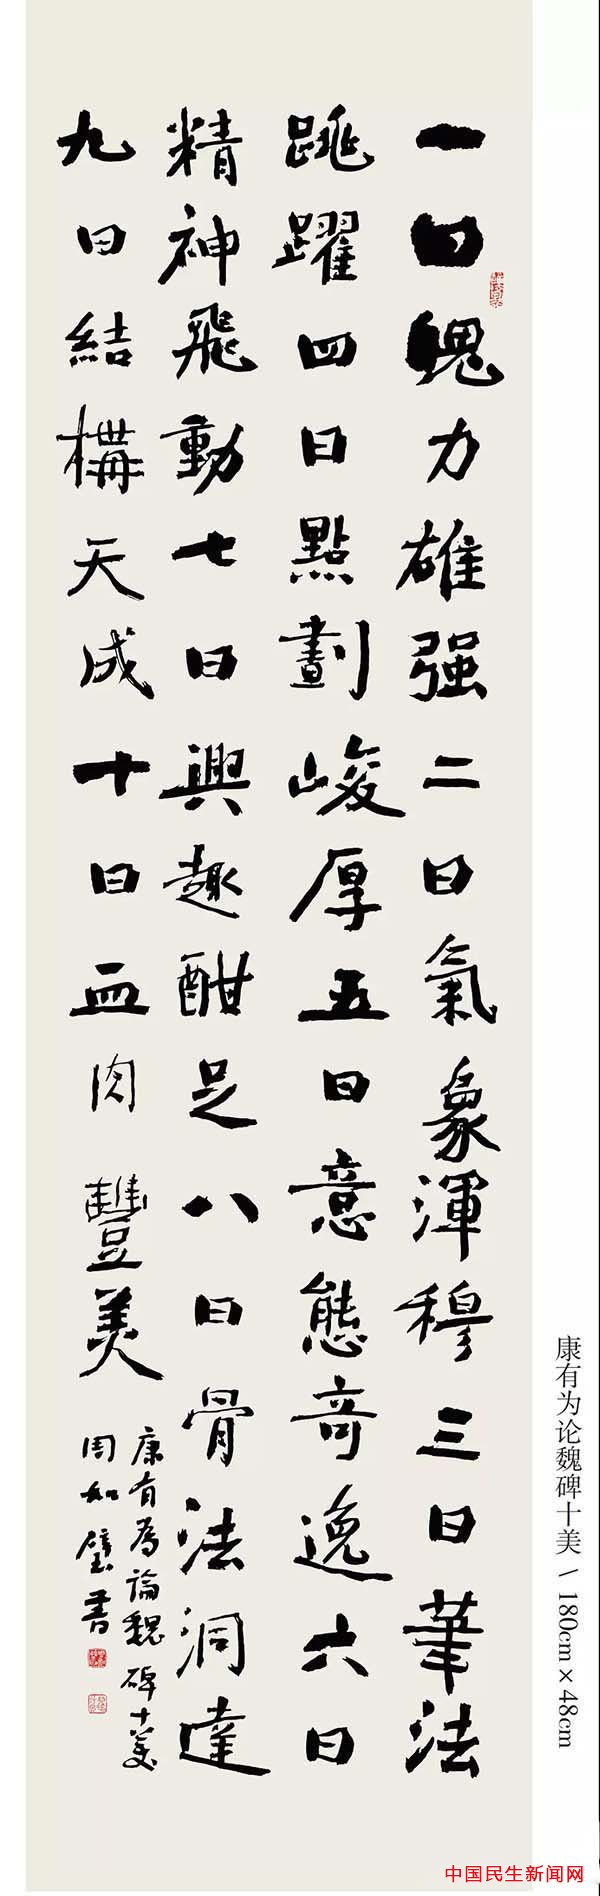 一曰魄力雄强二曰氣象渾穆三曰筆法
跳躍四曰點劃峻厚五曰意態奇逸六曰
精神飛動七曰興趣酣足八曰骨法洞達
九曰結構天成十曰血肉豐美
康有為論魏碑十美
周如璧書
康有为论魏碑十美 \ 180cm×48cm
中国民生新闻网